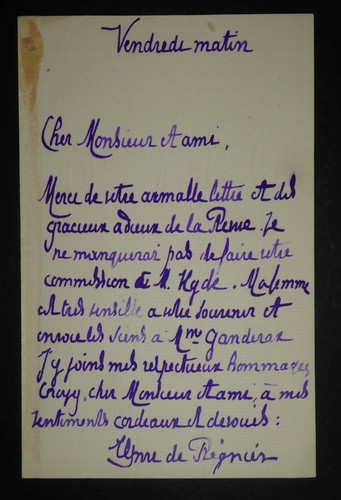 Vendredi matin
Cher Monsieur et ami,
Merci de votre aimable lettre et des
gracieux adieux de la Revue. Je
ne manquerai pas de faire votre
commission à M. Hyde. Ma femme
est très sensible à votre souvenir et
envoie les siens à Mme Ganderax
J'y joins mes respectueux hommages
Croyez, cher Monsieur et ami, à mes
sentiments cordiaux et dévoués :
Henri de Régnier